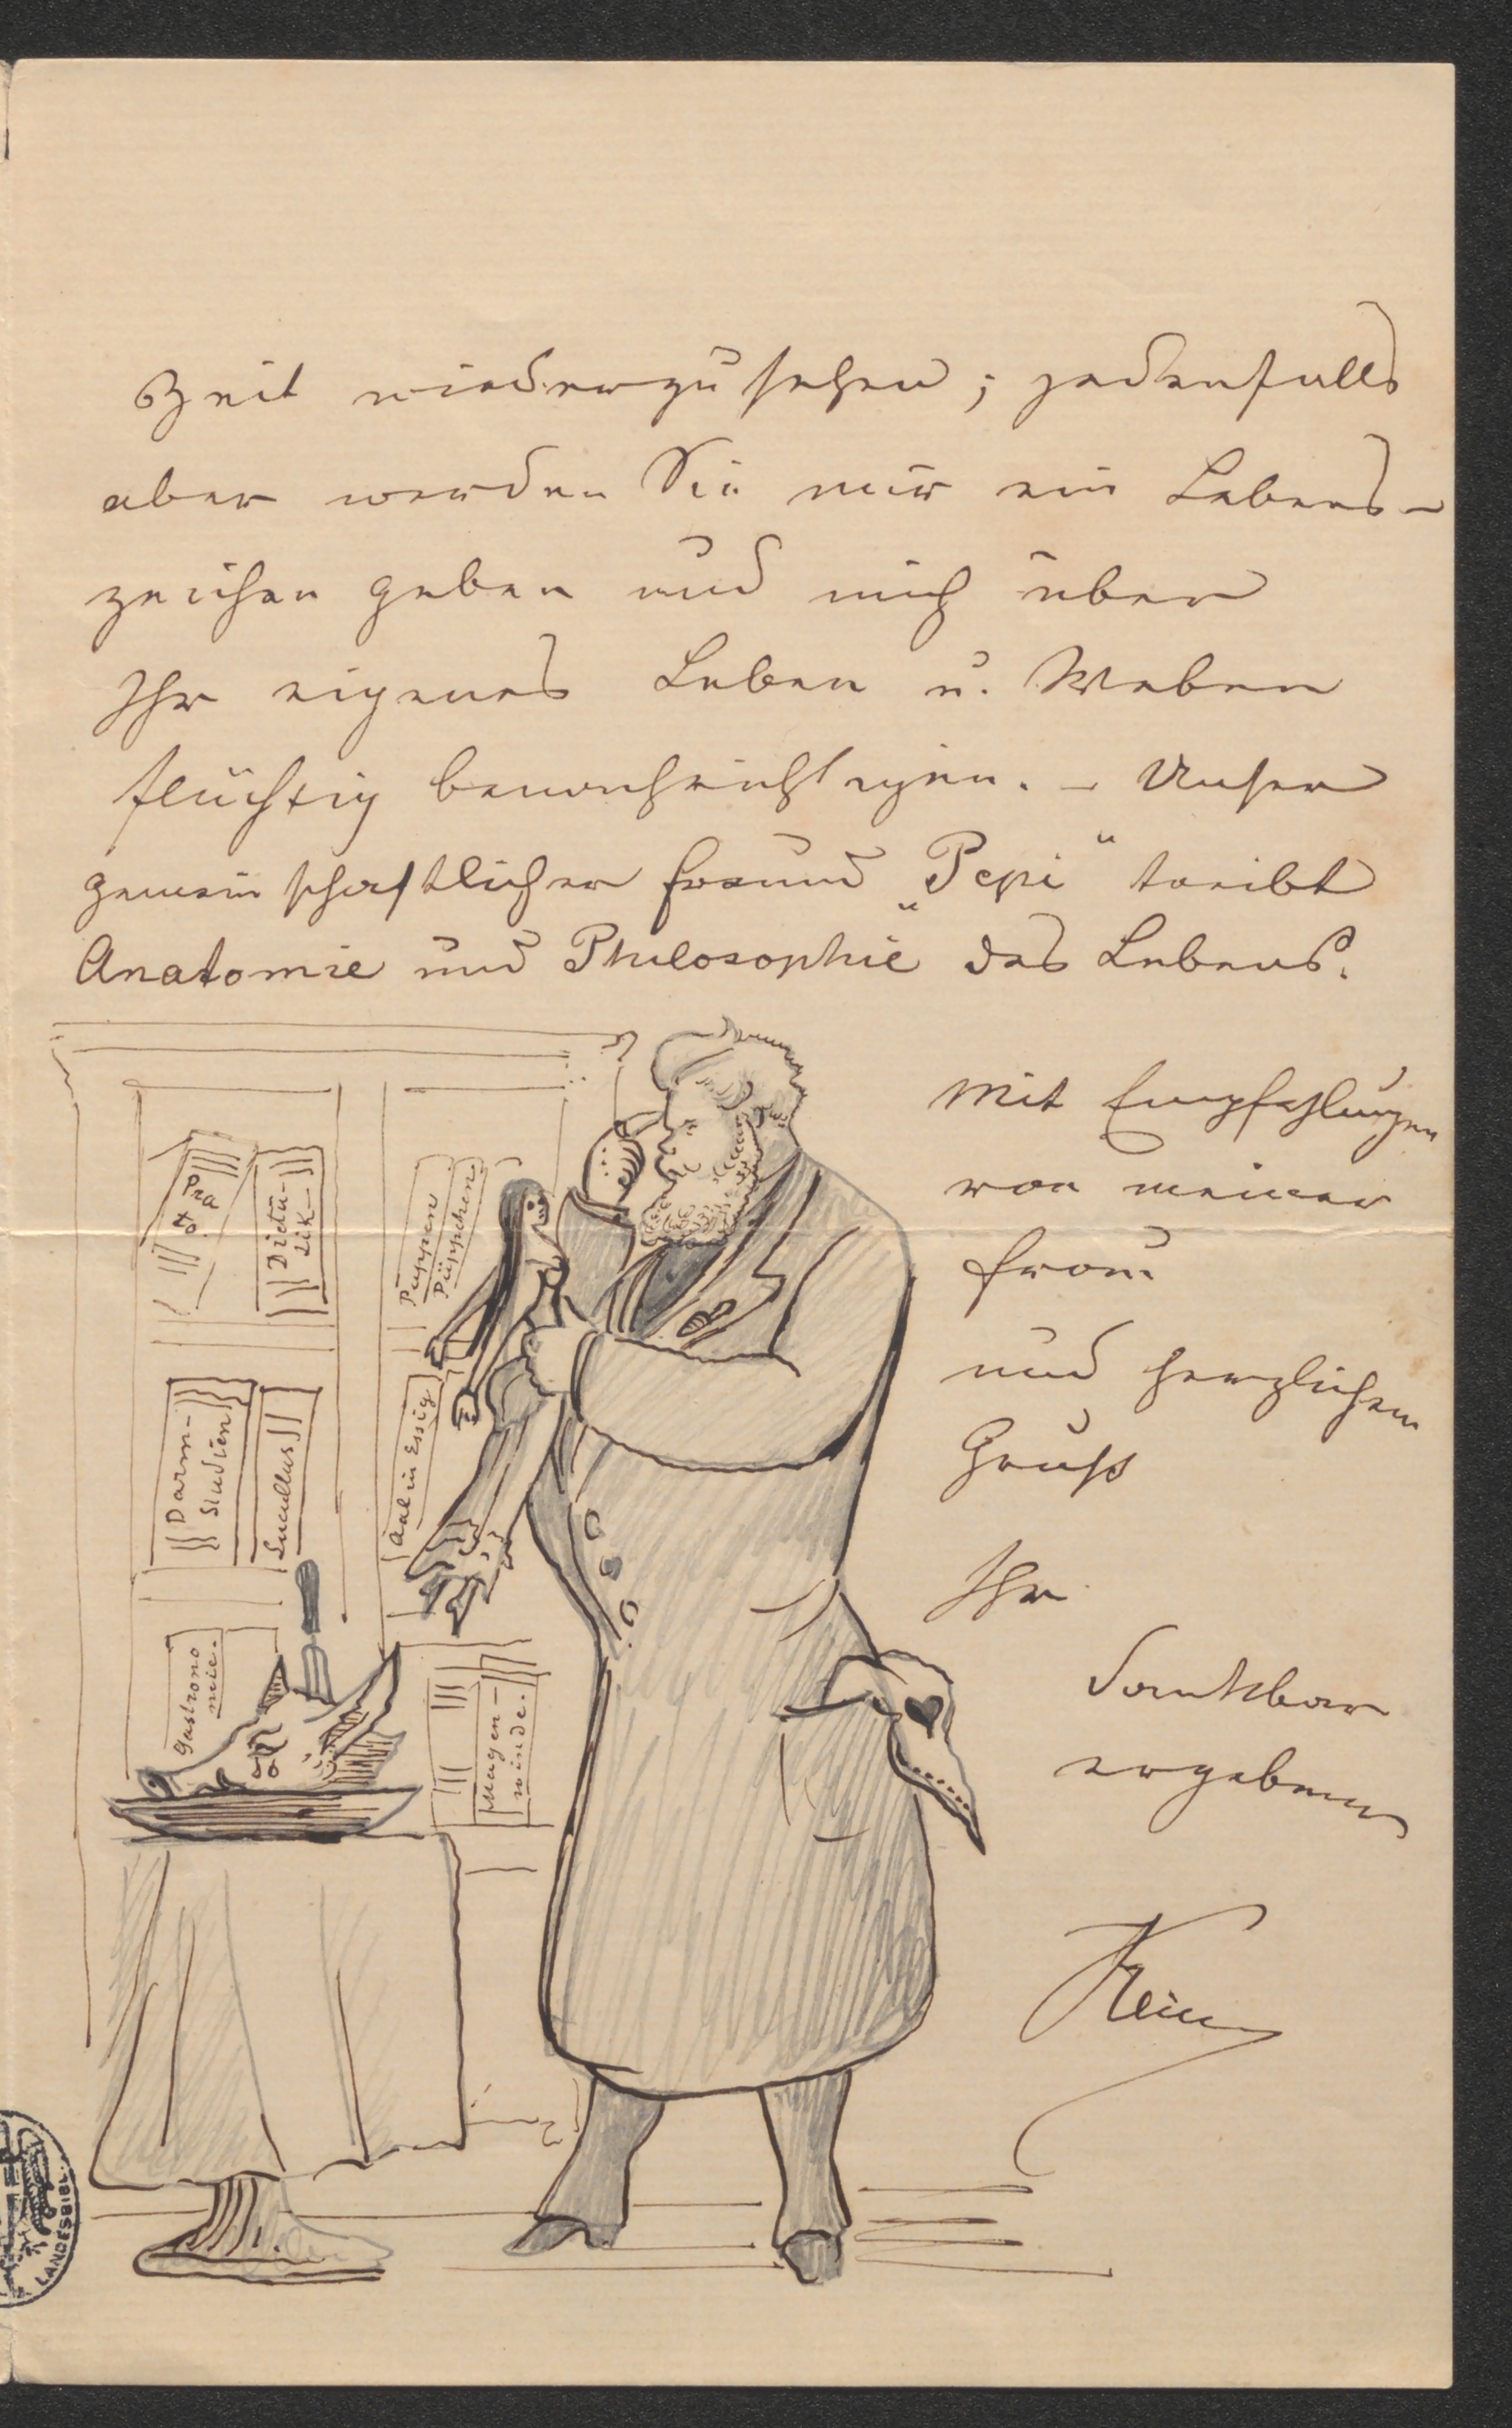 Zeit wiederzusehen; jedenfalls
aber werden Sie mir ein Lebens-
zeichen geben und mich über
Ihr eigenes Leben u. Weben
flüchtig benachrichtigen. – Unser
gemeinschaftlicher Freund „Pepi“ treibt
Anatomie und Philosophie des Lebens.
Mit Empfehlungen
von meiner
Frau
und herzlichem
Gruß
Ihr
dankbar
ergebener
Klein
Pra
to.
Diätä-
tik
Puppen
Püppchen
Darm-
Studien
Lucullus
Aal in Essig
Gastrono
mie.
Magen-
winde.
LANDESBIBL.